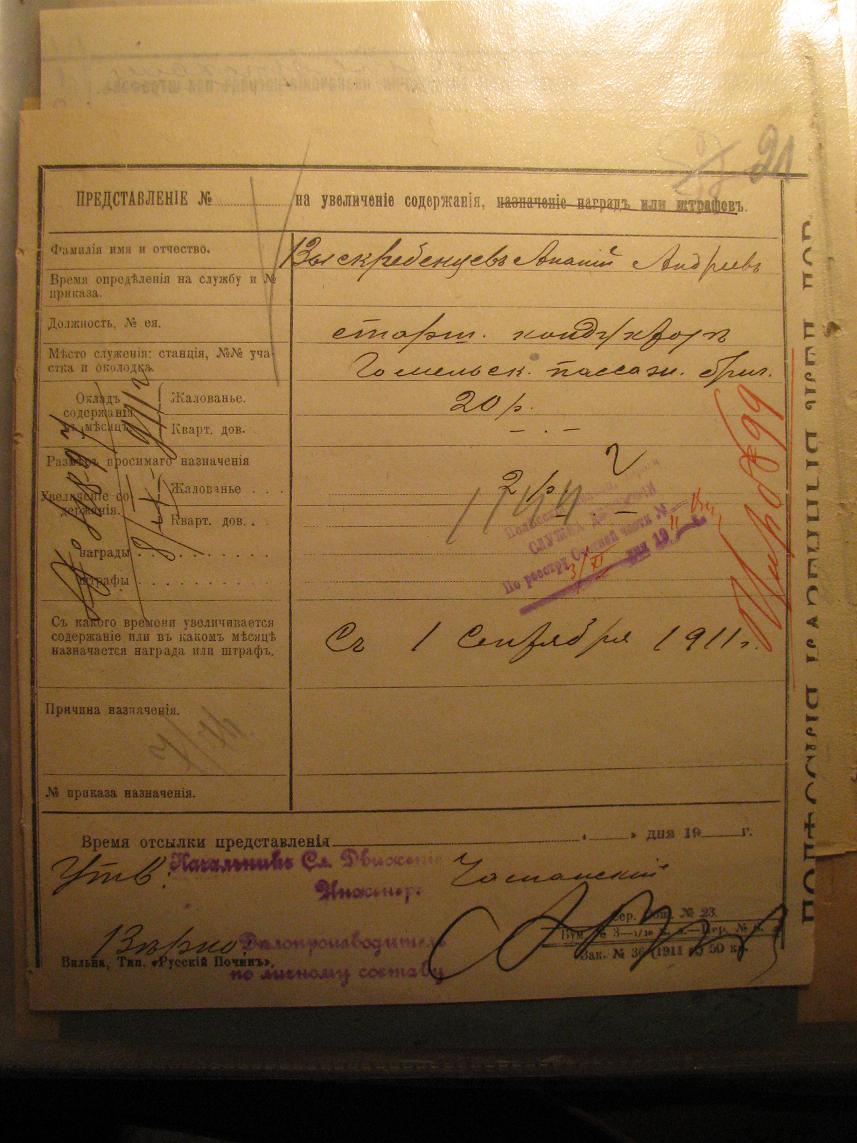 21
ПРЕДСТАВЛЕНІЕ № на увеличеніе содержанія, назначеніе наградъ или штрафовъ.
Фамилія имя и отчество. Выскребенцевъ Ананій Андреевъ
Время опредѣленія на службу и №
приказа.
Должность, № ея. старш. кондукторъ
Мѣсто служенія: станція, №№ уча-
стка и околодка. Гомельск. пассаж. бриг.
Окладъ
содержанія
въ мѣсяцъ
Жалованье. 20 р.
Кварт. дов. — . —
Размѣръ просимаго назначенія
Увеличеніе со-
держанія.
Жалованье . . . 2 р.
Кварт. дов. . . —
1744
награды
штрафы
Служба Движенія
По реестру Счетной части №
дня 19 г.
Съ какого времени увеличивается
содержаніе или въ какомъ мѣсяцѣ
назначается награда или штрафъ.
Съ 1 Сентября 1911 г.
Причина назначенія.
№ приказа назначенія.
Время отсылки представленія « » дня 19 г.
Утв. Начальникъ Сл. Движенія
Инженеръ
Вѣрно Дѣлопроизводитель
по личному составу
Вильна, Тип. «Русскій Починъ».
Сер. № 23.
Зак. № 36 (1911 г.) 50 кн.